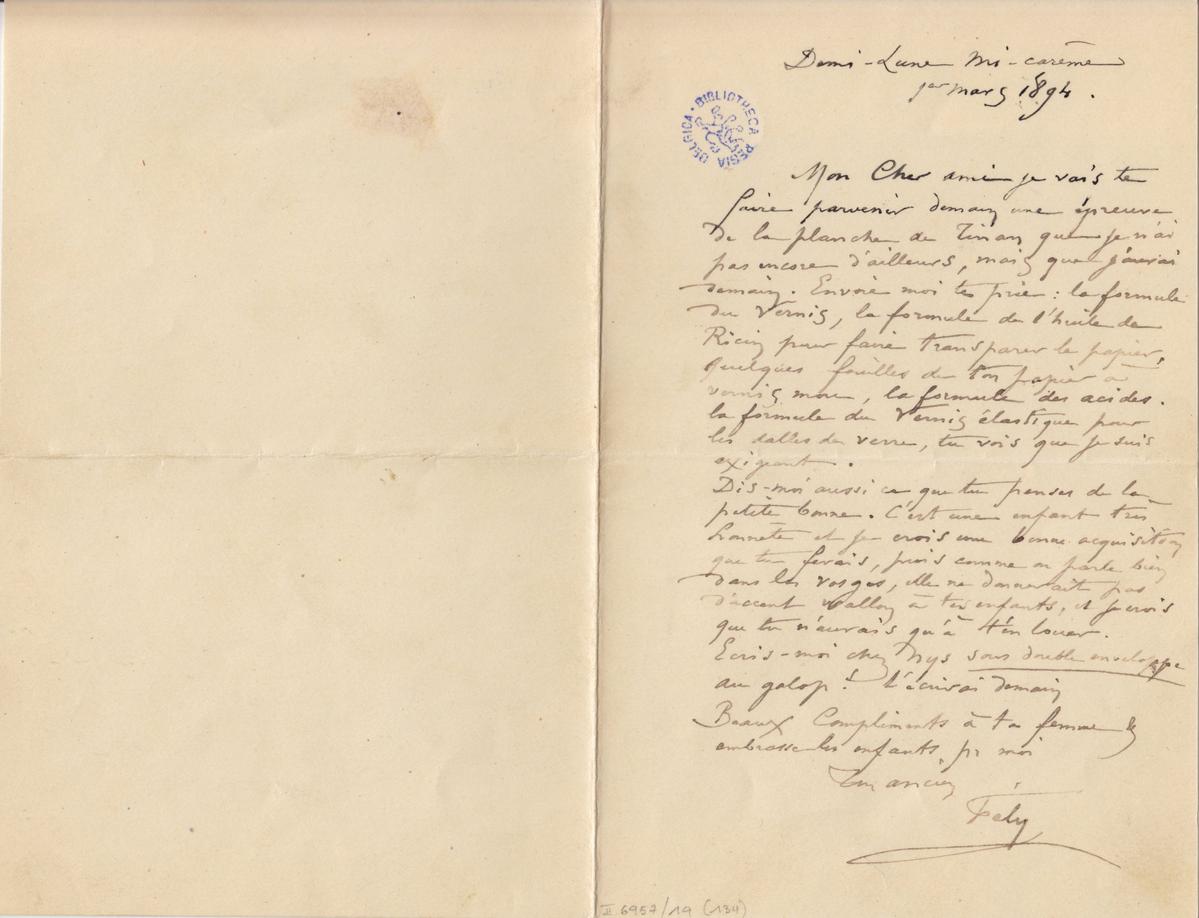 Demi-Lune Mi-carême
1er mars 1894.
BIBLIOTHECA REGIA BELGICA
Mon Cher ami je vais te
faire parvenir demain une épreuve
de la planche de Tinan que je n'ai
pas encore d'ailleurs, mais que j'aurai
demain. Envoie moi te prie : la formule
du Vernis, la formule de l'huile de
Ricin pour faire transparer le papier,
quelques feuilles de ton papier à
vernis mou, la formule des acides.
la formule du Vernis élastique pour
les dalles de verre, tu vois que je suis
exigeant.
Dis-moi aussi ce que tu penses de la
petite bonne. C'est une enfant très
honnête et je crois une bonne acquisition
que tu ferais, puis comme on parle bien
dans les vosges, elle ne donnerait pas
d'accent wallon à tes enfants, et je crois
que tu n'aurais qu'à t'en louer.
Ecris-moi chez Nys sous double enveloppe
au galop ! t'écrirai demain
Beaux Compliments à ta femme &
embrasse les enfants pr moi
Ton ancien
Fély
II 6957/19 (134)